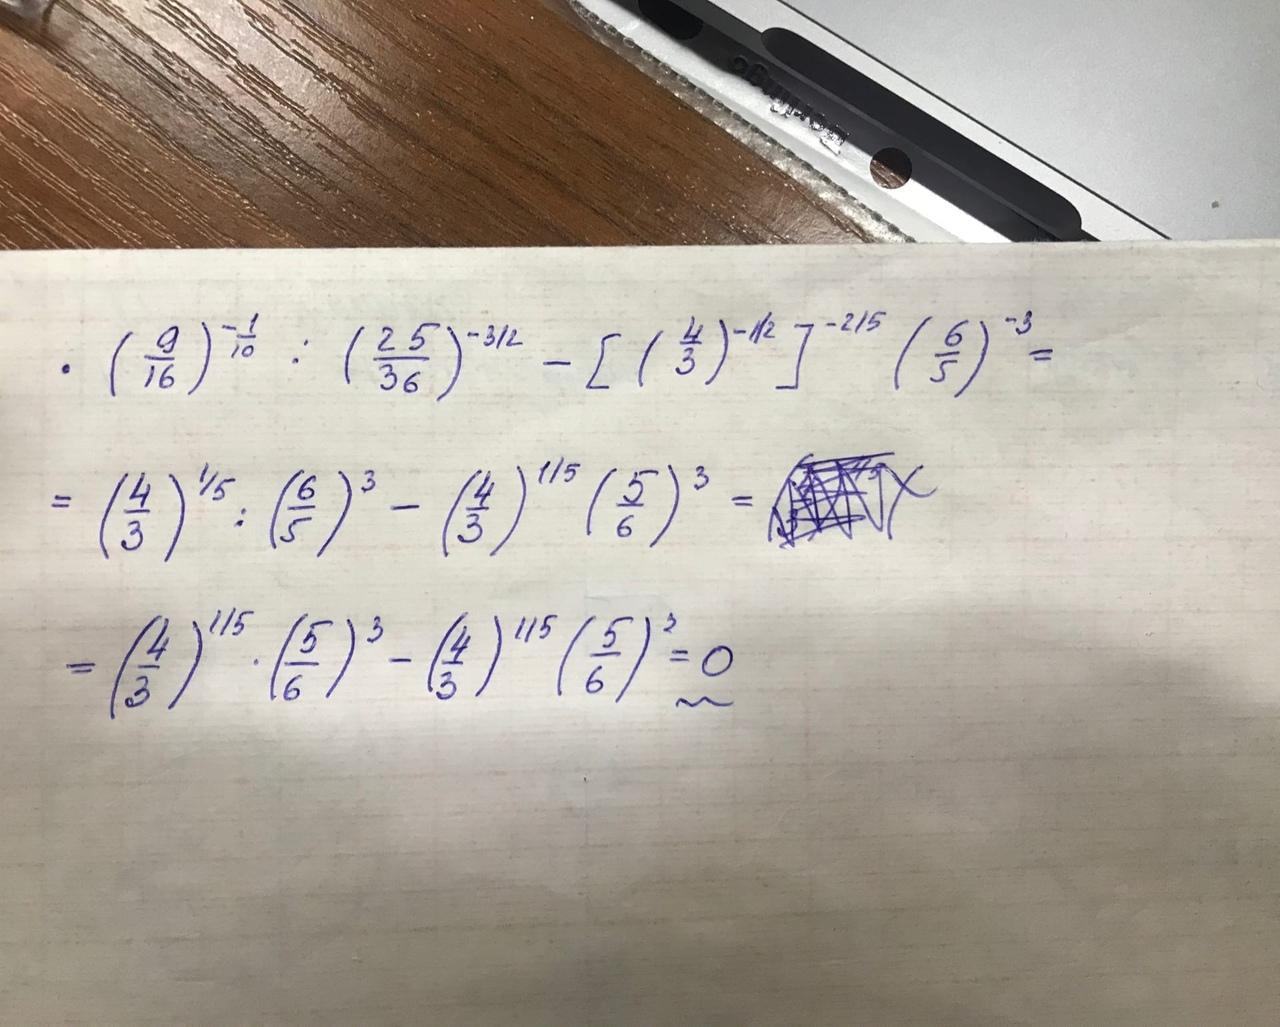 Durable
· (9/16)^{-1/10} : (25/36)^{-3/2} - [(4/3)^{-1/2}]^{-2/5} (6/5)^{-3} =
= (4/3)^{1/5} : (6/5)^3 - (4/3)^{1/5} (5/6)^3 =
= (4/3)^{1/5} · (5/6)^3 - (4/3)^{1/5} (5/6)^3 = 0